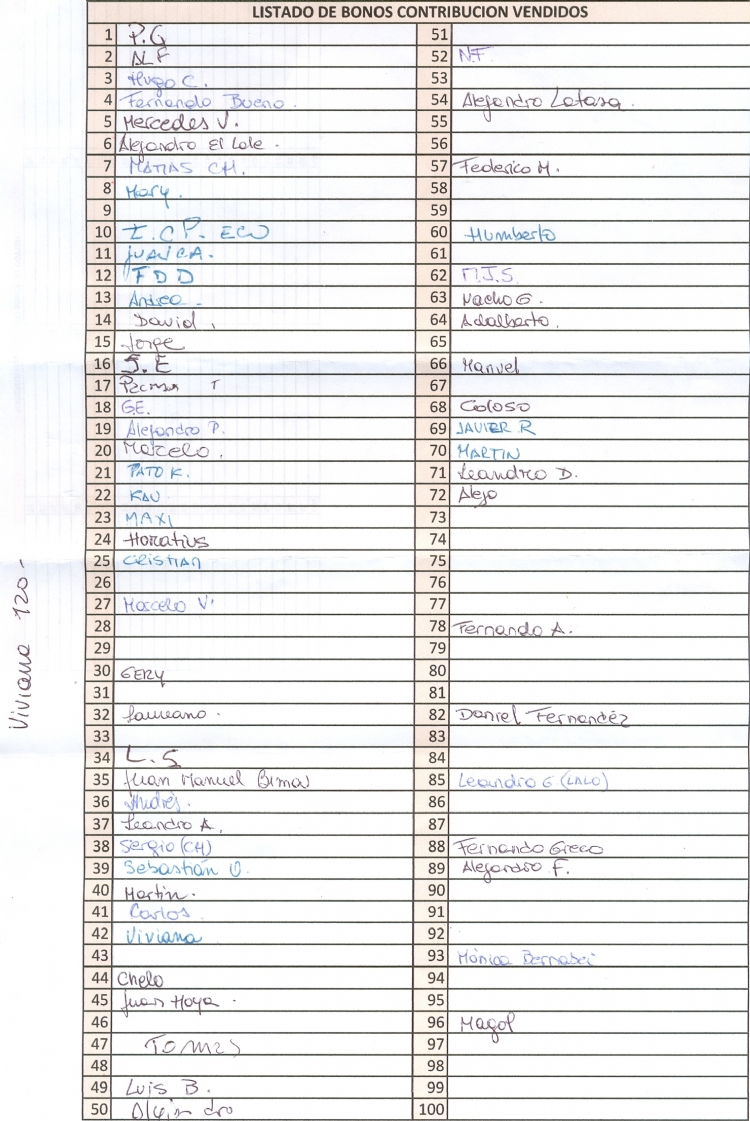 LISTADO DE BONOS CONTRIBUCION VENDIDOS
1 P.G
2 ALF
3 Hugo C.
4 Fernando Bueno.
5 Mercedes V.
6 Alejandro El Lole.
7 MATIAS CH.
8 Mary.
9
10 I.C.P. ECW
11 JUANCA.
12 FDD
13
14 David.
15 Jorge
16 S.E
17
18 G.E.
19 Alejandro P.
20 Marcelo.
21 PATO K.
22 KAU
23 MAXI
24 Horatius
25 CRISTIAN
26
27 Marcelo V.
28
29
30 GERY
31
32 Laureano.
33
34 L.S
35 Juan Manuel
36 Andrés.
37 Leandro A.
38 Sergio (CH)
39 Sebastián O.
40 Martin.
41 Carlos
42 Viviana
43
44 Chelo
45 Juan Moya.
46
47 TOMAS
48
49 Luis B.
50
51
52 N.F.
53
54 Alejandro Latasa.
55
56
57 Federico M.
58
59
60 Humberto
61
62 M.J.S
63 Nacho G.
64 Adalberto.
65
66 Manuel
67
68 Coloso
69 JAVIER R
70 MARTIN
71 Leandro D.
72 Alejo
73
74
75
76
77
78 Fernando A.
79
80
81
82 Daniel Fernandez
83
84
85 Leandro G (LALO)
86
87
88 Fernando Greco
89 Alejandro F.
90
91
92
93 Mónica Bernabei
94
95
96 Magol
97
98
99
100
Viviana 120-